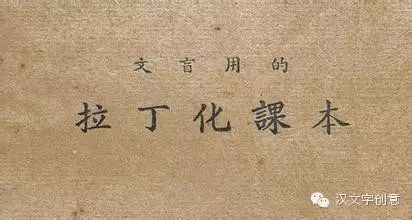 文盲用的
拉丁化課本
汉文字创意